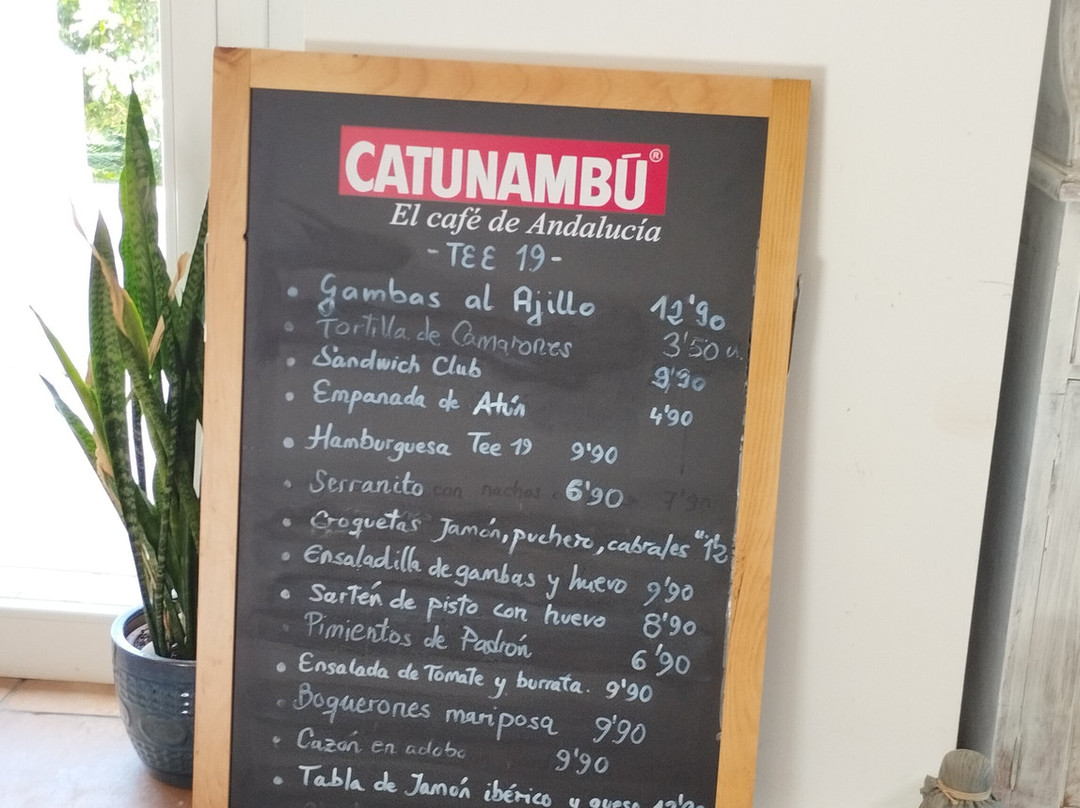 CATUNAMBÚ®
El café de Andalucía
- TEE 19 -
• Gambas al Ajillo 12'90
• Tortilla de Camarones 3'50 u.
• Sandwich Club 9'90
• Empanada de Atún 4'90
• Hamburguesa Tee 19 9'90
• Serranito 6'90
• Croquetas Jamón, puchero, cabrales
• Ensaladilla de gambas y huevo 9'90
• Sartén de pisto con huevo 8'90
Pimientos de Padrón 6'90
• Ensalada de Tomate y burrata. 9'90
• Boquerones mariposa 9'90
• Cazón en adobo 9'90
• Tabla de Jamón ibérico y queso 12'90